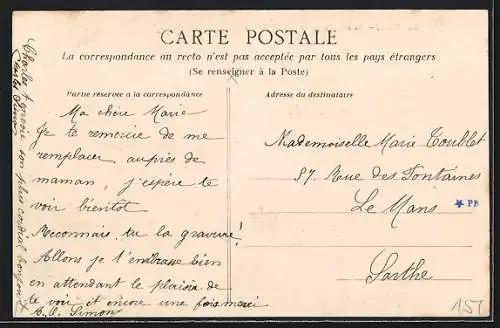 CARTE POSTALE
La correspondance au recto n'est pas acceptée par tous les pays étrangers
(Se renseigner à la Poste)
Partie réservée à la correspondance
Adresse du destinataire
Ma chère Marie
Je te remercie de me
remplacer auprès de
maman, j'espère te
voir bientôt
Reconnais-tu la gravure!
Allons je t'embrasse bien
en attendant le plaisir de
te voir et encore une fois merci
Simon
Mademoiselle Marie Toublet
57 Rue des Fontaines
Le Mans
Sarthe
* PB
151
Charles envoie son plus cordial bonjour
Charles Simon